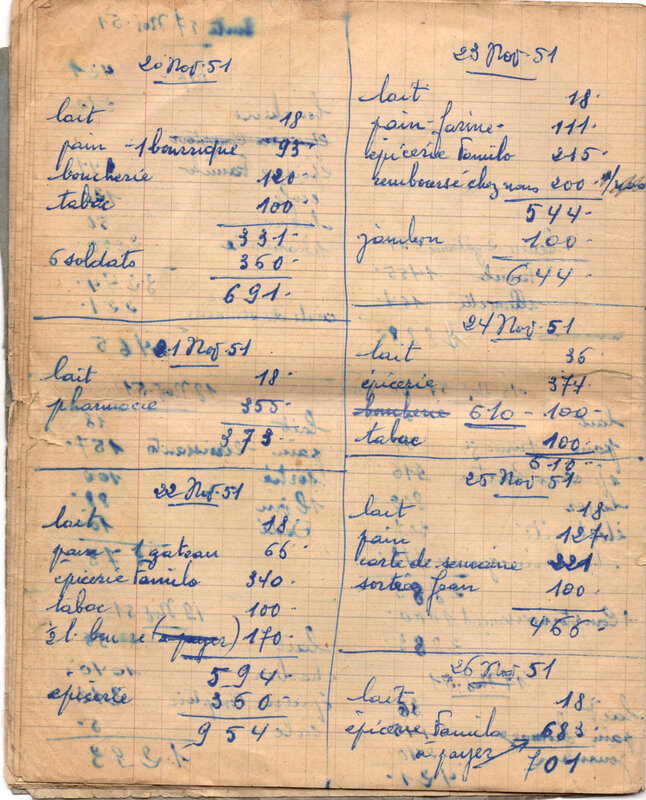 20 Nov. 51
lait 18.
pain - 1 bourrique 93.
boucherie 120
tabac 100
331.
6 soldats 360.
691.
21 Nov. 51
lait 18.
pharmacie 355
373.
22 Nov. 51
lait 18
pain 1 gâteau 66.
épicerie Familo 340.
tabac 100.
½ l. beurre (à payer) 170.
594
épicerie 360.
954
23 Nov. 51
lait 18.
pain - farine - 111.
épicerie Familo 215.
remboursé chez nous 200
544.
jambon 100.
644.
24 Nov. 51
lait 36
épicerie 374
boucherie 610 - 100.
tabac 100.
610.
25 Nov. 51
lait 18.
pain 127
carte de semaine 221
sortie Jean 100.
466
26 Nov. 51
lait 18
épicerie Familo 683
à payer 701